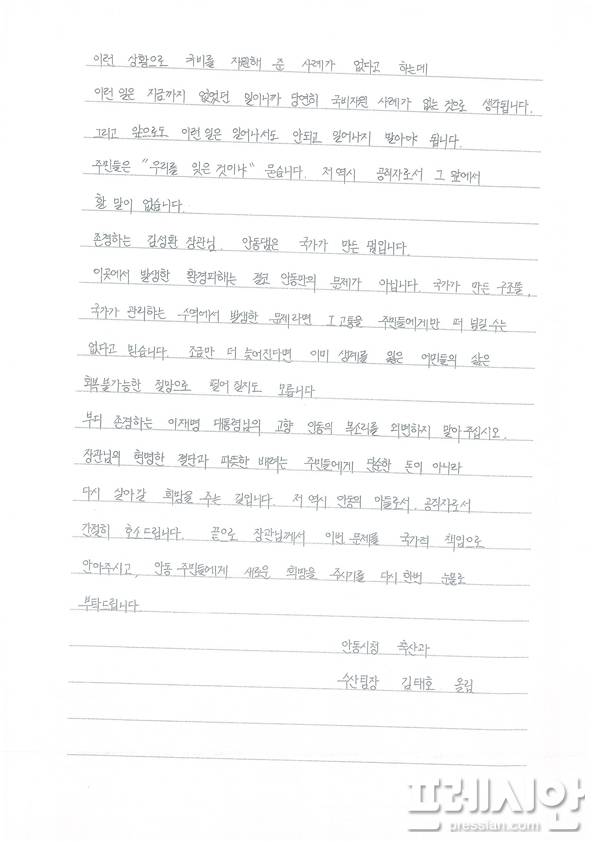 이런 상황으로 국비를 지원해 준 사례가 없다고 하는데
이런 일은 지금까지 없었던 일이니까 당연히 국비지원 사례가 없는 것으로 생각됩니다.
그리고 앞으로도 이런 일은 일어나서도 안되고 일어나지 말아야 됩니다.
주민들은 "우리를 잊은 것이냐" 묻습니다. 저 역시 공직자로서 그 앞에서
할 말이 없습니다.
존경하는 김성환 장관님. 안동댐은 국가가 만든 댐입니다.
이곳에서 발생한 환경피해는 결코 안동만의 문제가 아닙니다. 국가가 만든 구조물,
국가가 관리하는 수역에서 발생한 문제라면 그 고통을 주민들에게만 떠 넘길 수는
없다고 믿습니다. 조금만 더 늦어진다면 이미 생계를 잃은 어민들의 삶은
회복불가능한 절망으로 떨어질지도 모릅니다
부디 존경하는 이재명 대통령님의 고향 안동의 목소리를 외면하지 말아 주십시오.
장관님의 현명한 결단과 따뜻한 배려는 주민들에게 단순한 돈이 아니라
다시 살아갈 희망을 주는 길입니다. 저 역시 안동의 아들로서, 공직자로서
간절히 호소드립니다. 끝으로 장관님께서 이번 문제를 국가적 책임으로
안아주시고, 안동 주민들에게 새로운 희망을 주시기를 다시 한번 눈물로
부탁드립니다
안동시청 축산과
수산팀장 김태호 올림
프레시안
pressian.com